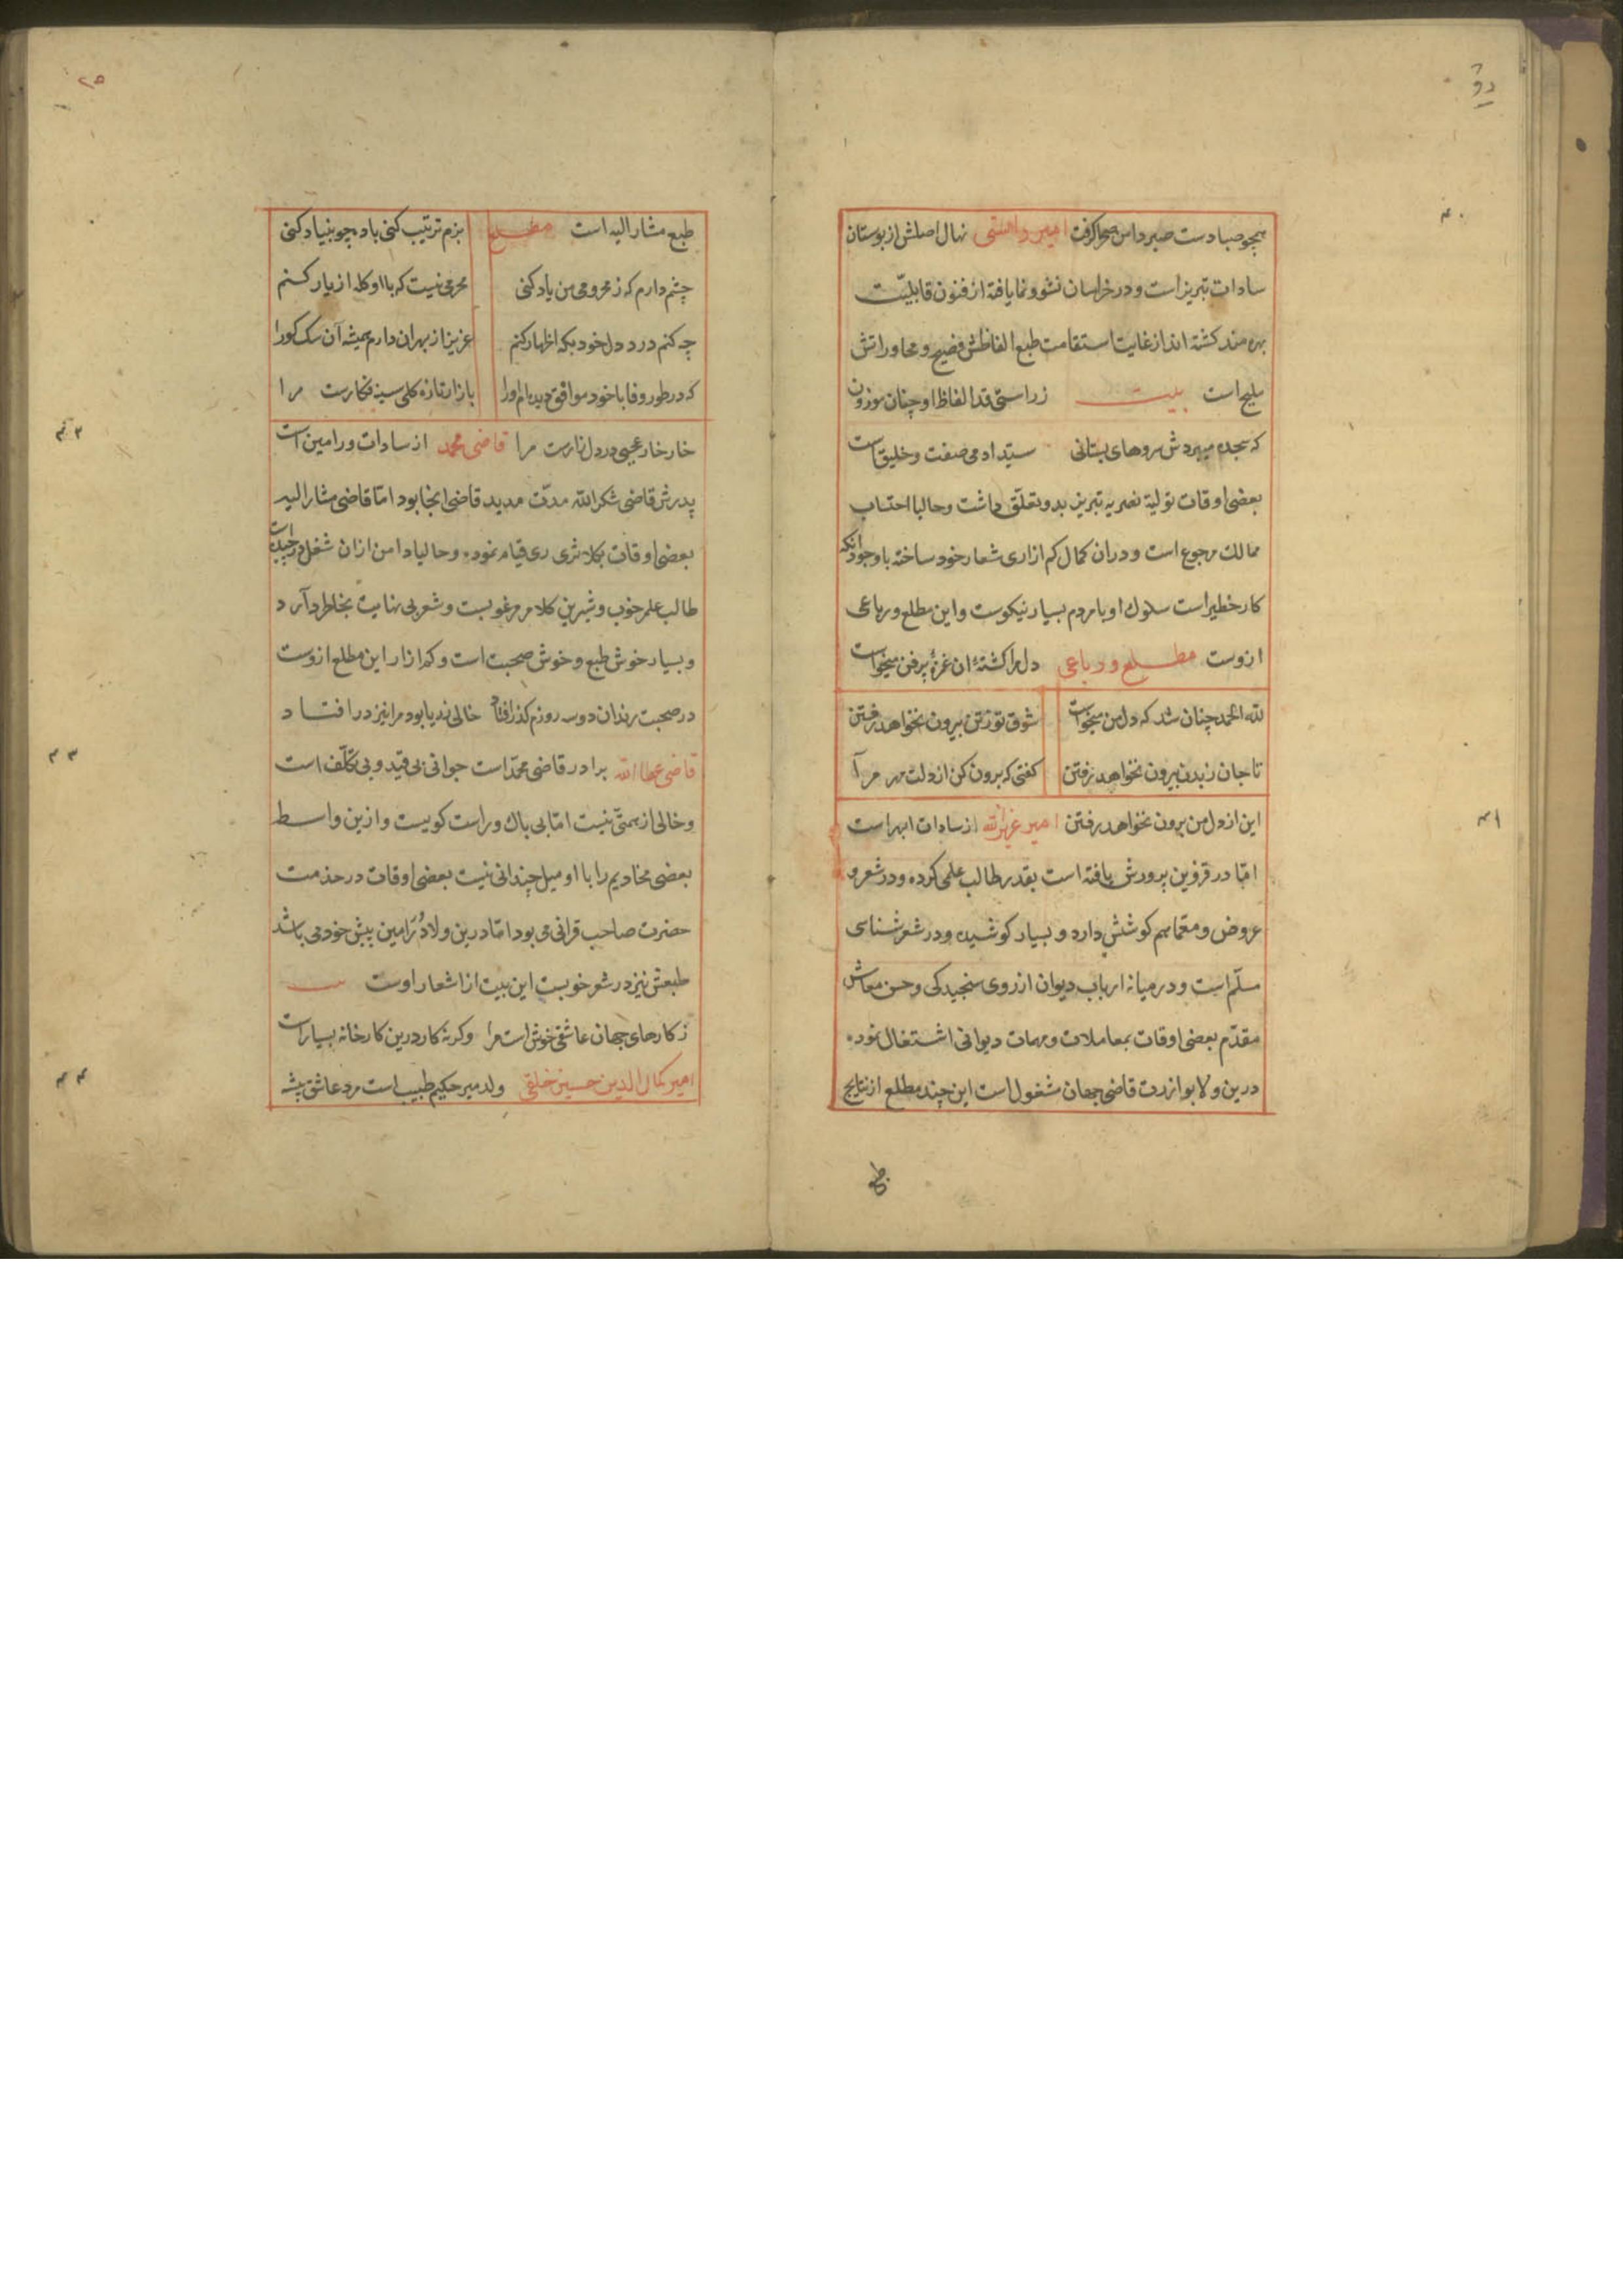 همچو صبا دست صبر دامن صحرا کرفت امیر راستی نهال اصلش از بوستان
سادات تبریز است و در خراسان نشو و نما یافته از فنون قابلیّت
بهره مند کشته اند از غایت استقامت طبع الفاظش فصیح و محاوراتش
ملیح است بیت ز راستی قد الفاظ او چنان موزون
که سجده میبردش سروهای بستانی سیّد ادمی صفت و خلیق است
بعضی اوقات تولیة نصریه تبریز بدو تعلّق داشت و حالیا احتساب
ممالک مرجوع است و دران کمال کم ازاری شعار خود ساخته با وجود آنکه
کار خطیر است سلوک او با مردم بسیار نیکوست و این مطلع و رباعی
ازوست مطلع و رباعی دل مرا کشتهٔ ان غمزهٔ پرفن میخواست
لله الحمد چنان شد که دل من میخواست شوق تو ز تن بیرون نخواهد رفتن
تا جان ز بدن بیرون نخواهد رفتن کفتی که برون کن از دلت مهر مرا
این از دل من برون نخواهد رفتن امیر عزیزالله از سادات ابهر است
امّا در قزوین پرورش یافته است بقدر طالب علمی کرده و در شعر و
عروض و معمّا هم کوششی دارد و بسیار کوشیده و در شعر شناسی
مسلّم است و در میانه ارباب دیوان از روی سنجیدکی و حسن معاش
مقدّم بعضی اوقات بمعاملات و مهمات دیوانی اشتغال نموده
درین ولا بوازرت قاضی جهان مشغول است این چند مطلع از نتایج
طبع
۴۰
۴۱
۲۵
طبع مشار الیه است مطلع بزم ترتیب کنی باده چو بنیاد کنی
چشم دارم که ز محرومی من یاد کنی محرمی نیست که با او کله از یار کنم
چه کنم درد دل خود بکه اظهار کنم عزیز از بهر ان دارم همیشه آن سک کو را
که در طور وفا با خود موافق دیده ام او را باز از تازه کلی سینه فکارست مرا
خار خار عجبی در دل زارست مرا قاضی محمد از سادات ورامین است
پدرش قاضی شکرالله مدت مدید قاضی انجا بود امّا قاضی مشار الیه
بعضی اوقات بکلانتری ری قیام نموده و حالیا دامن ازان شغل درچیده است
طالب علم خوب و شیرین کلام مرغوبست و شعر بی نهایت بخاطر دارد
و بسیار خوش طبع و خوش صحبت است و کم ازار این مطلع ازوست
در صحبت رندان دو سه روزم کذر افتاد خالی ز ریا بود مرا نیز در افتاد
قاضی عطاالله برادر قاضی محمّد است جوانی بی قید و بی تکلّف است
و خالی از همتی نیست امّا بی باک و راست کوییست و ازین واسطه
بعضی مخادیم را با او میل چندانی نیست بعضی اوقات در خدمت
حضرت صاحب قرانی می بود امّا درین ولا در ورامین پیش خود می باشد
طبعش نیز در شعر خوبست این بیت از اشعار اوست بیت
ز کارهای جهان عاشقی خوش است مرا وکرنه کار درین کارخانه بسیار است
امیر کمال الدین حسین خلقی ولد میر حکیم طبیب است مرد عاشق پیشه
۴۲
۴۳
۴۴